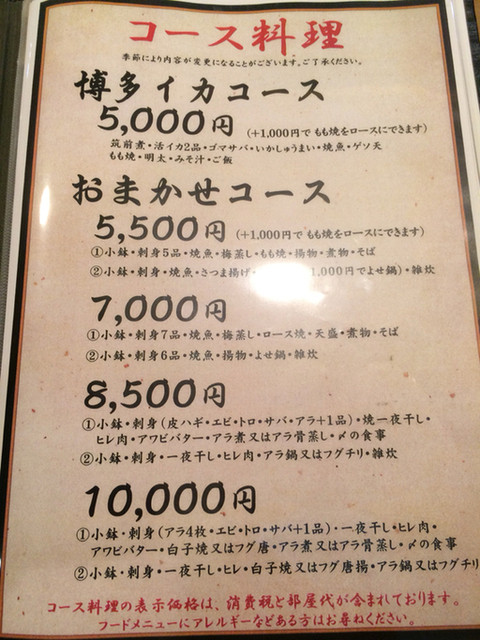 コース料理
季節により内容が変更になることがございます。ご了承ください。
博多イカコース
5,000円 (+1,000円で もも焼をロースにできます)
筑前煮・活イカ2品・ゴマサバ・いかしゅうまい・焼魚・ゲソ天
もも焼・明太・みそ汁・ご飯
おまかせコース
5,500円 (+1,000円で もも焼をロースにできます)
①小鉢・刺身5品・焼魚・梅蒸し・もも焼・揚物・煮物・そば
②小鉢・刺身・焼魚・さつま揚げ・ 1,000円でよせ鍋)・雑炊
7,000円
①小鉢・刺身7品・焼魚・梅蒸し・ロース焼・天盛・煮物・そば
②小鉢・刺身6品・焼魚・揚物・よせ鍋・雑炊
8,500円
①小鉢・刺身(皮ハギ・エビ・トロ・サバ・アラ+1品)・焼一夜干し・
ヒレ肉・アワビバター・アラ煮又はアラ骨蒸し・〆の食事
②小鉢・刺身・一夜干し・ヒレ肉・アラ鍋又はフグチリ・雑炊
10,000円
①小鉢・刺身(アラ4枚・エビ・トロ・サバ+1品)・一夜干し・ヒレ肉・
アワビバター・白子焼又はフグ唐・アラ煮又はアラ骨蒸し・〆の食事
②小鉢・刺身・一夜干し・ヒレ・白子焼又はフグ唐揚・アラ鍋又はフグチリ
コース料理の表示価格は、消費税と部屋代が含まれております。
フードメニューにアレルギーなどある方はお尋ねください。